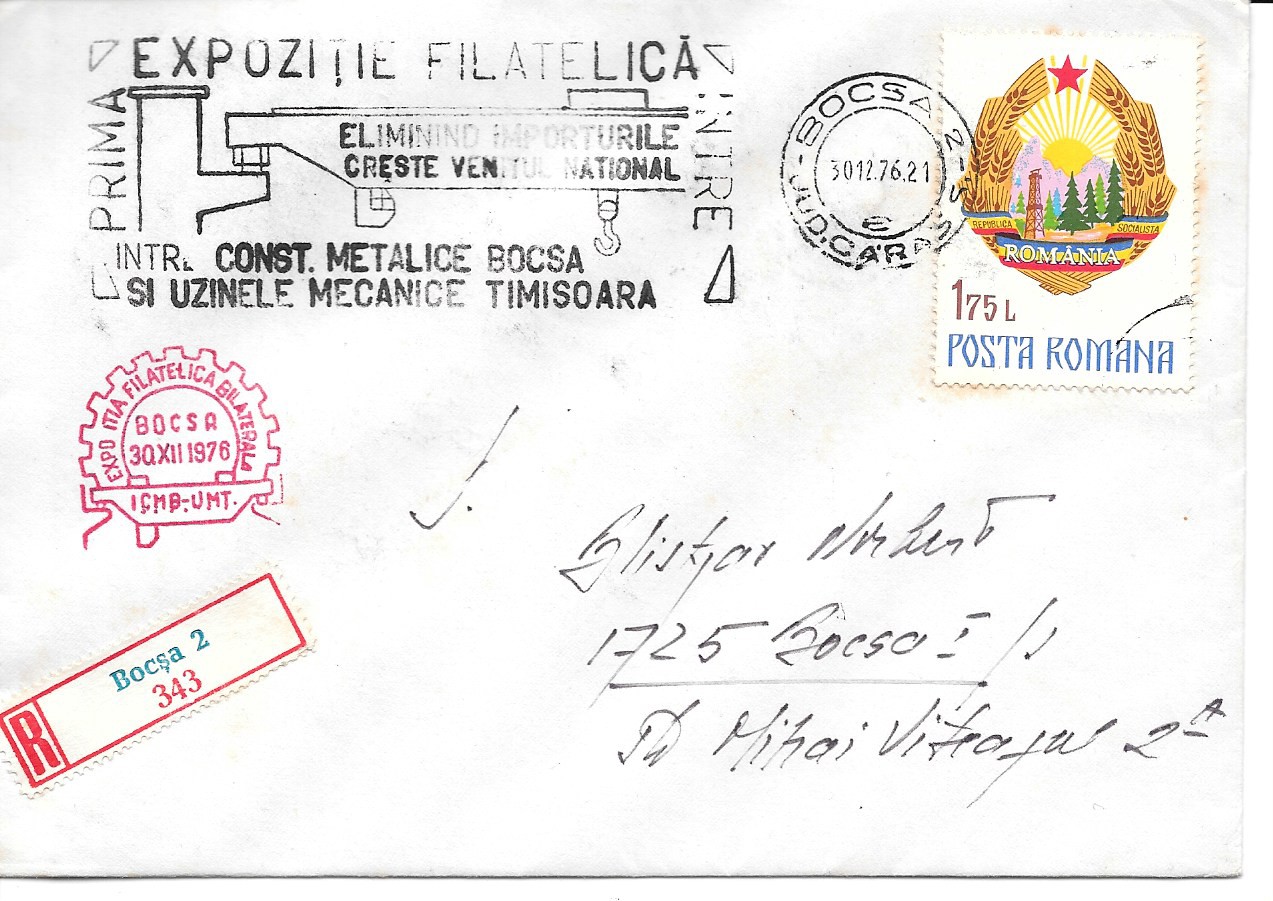 EXPOZIȚIE FILATELICĂ
PRIMA
INTRE
ELIMININD IMPORTURILE
CREȘTE VENITUL NATIONAL
INTRE CONST. METALICE BOCSA
SI UZINELE MECANICE TIMISOARA
BOCSA 2
JUD. CARAȘ S
30.12.76.21
e
REPUBLICA SOCIALISTA
ROMÂNIA
175 L
POSTA ROMANA
EXPOZITIA FILATELICA BILATERALA
BOCSA
30.XII 1976
ICMB-UMT.
Bocșa 2
343
R
Norbert
1725 Bocsa I
Mihai Viteazul 2A